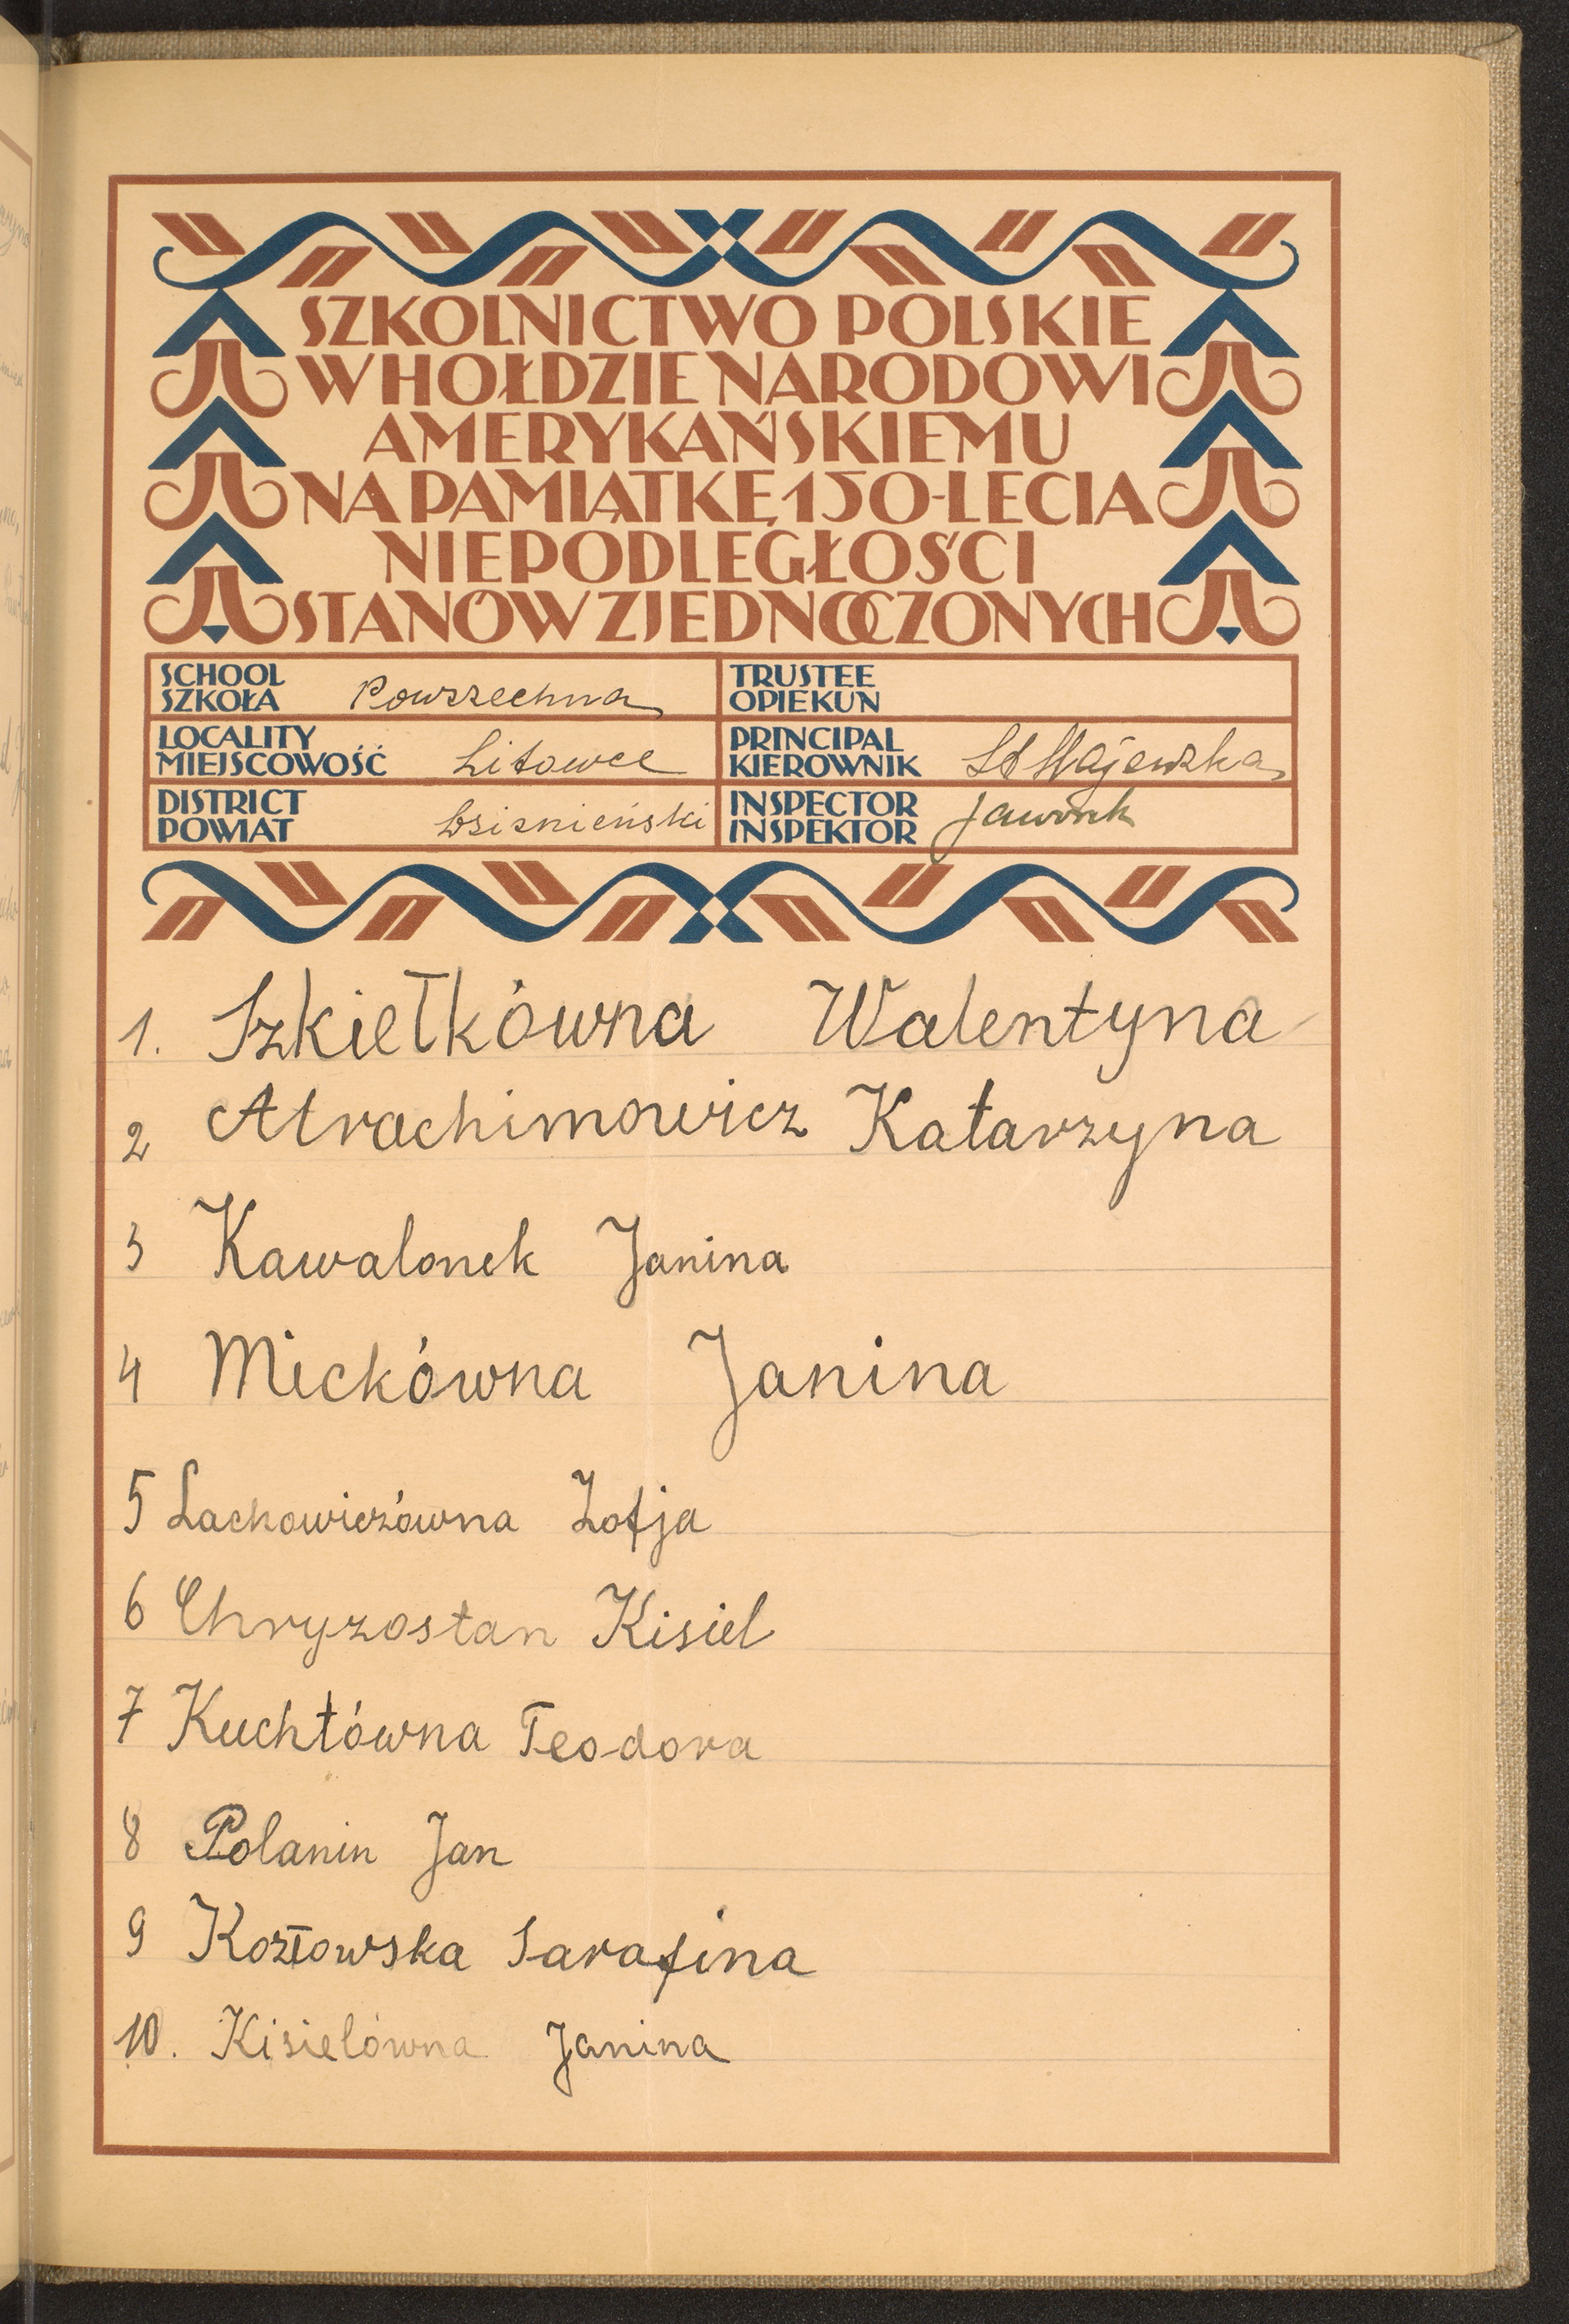 SZKOLNICTWO POLSKIE
W HOŁDZIE NARODOWI
AMERYKAŃSKIEMU
NA PAMIĄTKĘ 150-LECIA
NIEPODLEGŁOŚCI
STANÓW ZJEDNOCZONYCH
SCHOOL
SZKOŁA Powszechna
TRUSTEE
OPIEKUN
LOCALITY
MIEJSCOWOŚĆ Litowce
PRINCIPAL
KIEROWNIK St Majewska
DISTRICT
POWIAT Dzisnieński
INSPECTOR
INSPEKTOR Jaworek
1. Szkiełkówna Walentyna
2 Atrachimowicz Katarzyna
3 Kawalonek Janina
4 Mickówna Janina
5 Lachowiczówna Zofja
6 Chryzostan Kisiel
7 Kuchtówna Teodora
8 Polanin Jan
9 Kozłowska Sarafina
10. Kisielówna Janina